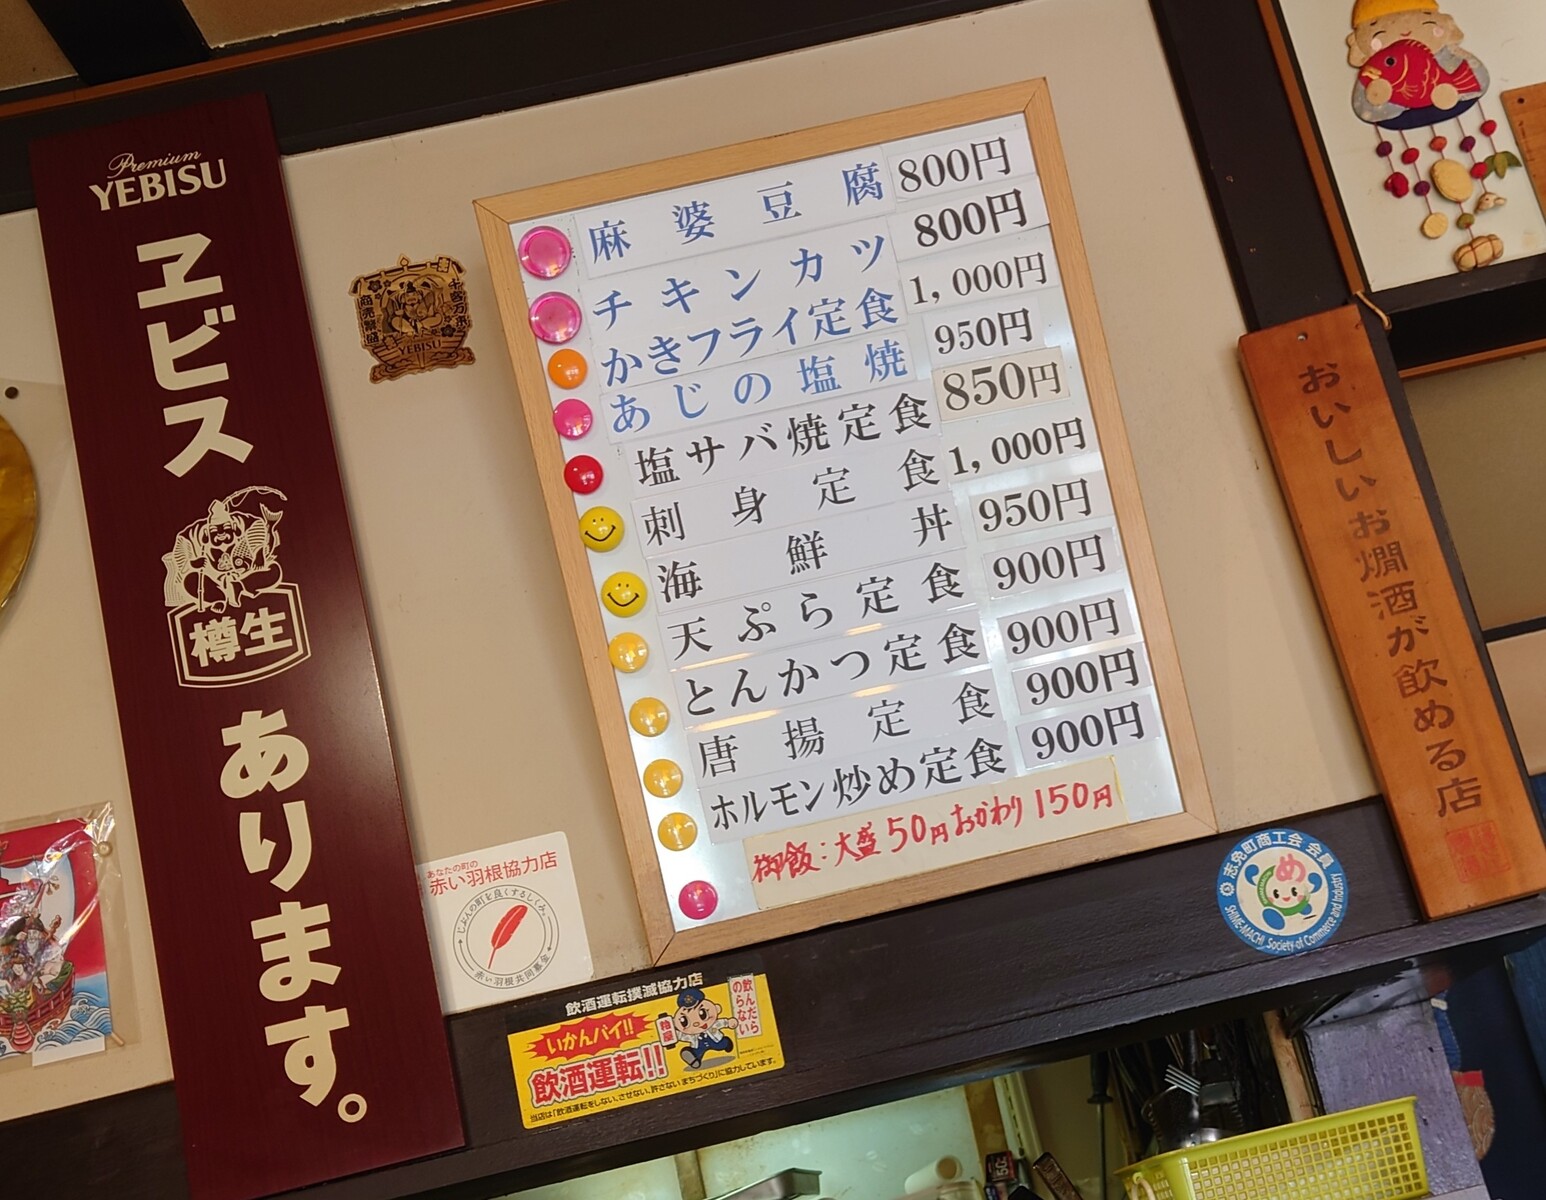 Premium
YEBISU
ヱビス
樽生
あります。
商売繁盛
千客万来
YEBISU
麻婆豆腐 800円
チキンカツ 800円
かきフライ定食 1,000円
あじの塩焼 950円
塩サバ焼定食 850円
刺身定食 1,000円
海鮮丼 950円
天ぷら定食 900円
とんかつ定食 900円
唐揚定食 900円
ホルモン炒め定食 900円
御飯:大盛50円おかわり150円
あなたの町の
赤い羽根協力店
じぶんの町を良くするしくみ。
赤い羽根共同募金
飲酒運転撲滅協力店
いかんバイ!!
飲酒運転!!
飲んだら
のらない
当店は「飲酒運転をしない、させない、許さない まちづくり」に協力しています。
志免町商工会 会員
め
SHIME-MACHI Society of Commerce and Industry
おいしいお燗酒が飲める店